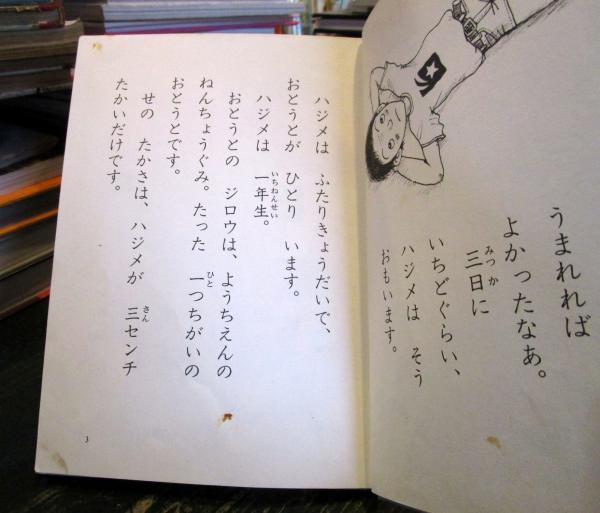 うまれれば
よかったなあ。
三日に
みつか
いちどぐらい、
ハジメは そう
おもいます。
ハジメは ふたりきょうだいで、
おとうとが ひとり います。
ハジメは 一年生。
いちねんせい
おとうとの ジロウは、ようちえんの
ねんちょうぐみ。たった 一つちがいの
ひと
おとうとです。
せの たかさは、ハジメが 三センチ
さん
たかいだけです。
3